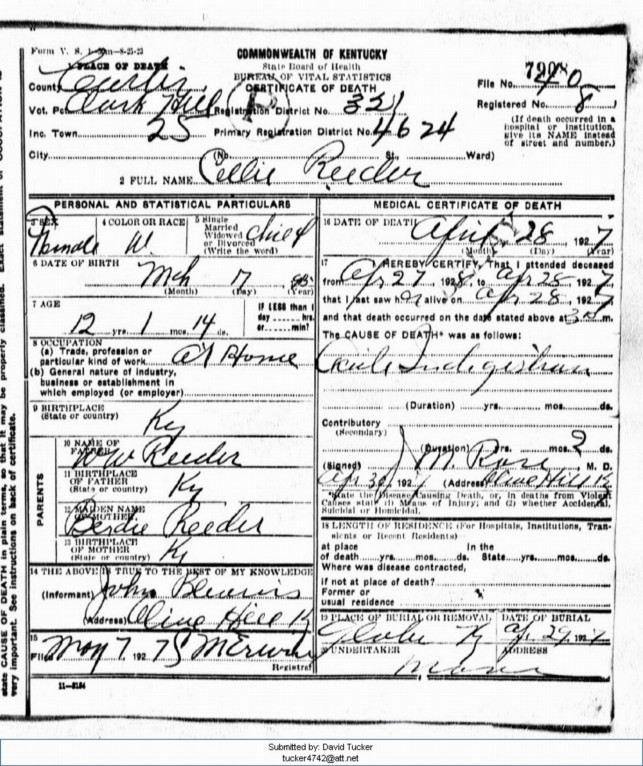 Form V. S. 1-
COMMONWEALTH OF KENTUCKY
State Board of Health
BUREAU OF VITAL STATISTICS
CERTIFICATE OF DEATH
PLACE OF DEATH
County Carter
Vot. Pct. Clark Hill
Inc. Town 25
City
Registration District No. 321
Primary Registration District No. 4624
(No. St. Ward)
File No.
Registered No. 8
(If death occurred in a hospital or institution, give its NAME instead of street and number.)
2 FULL NAME Cellie Reeder
PERSONAL AND STATISTICAL PARTICULARS
4 COLOR OR RACE
5 Single Married Widowed or Divorced (Write the word)
Female W. Child
6 DATE OF BIRTH
Mch 7
(Month) (Day) (Year)
7 AGE
12 yrs. 1 mos. 14 ds.
IF LESS than 1 day hrs. or min?
8 OCCUPATION
(a) Trade, profession or particular kind of work At Home
(b) General nature of industry, business or establishment in which employed (or employer)
9 BIRTHPLACE
(State or country) Ky
PARENTS
10 NAME OF FATHER Reeder
11 BIRTHPLACE OF FATHER
(State or country) Ky
12 MAIDEN NAME OF MOTHER Reeder
13 BIRTHPLACE OF MOTHER
(State or country) Ky
14 THE ABOVE IS TRUE TO THE BEST OF MY KNOWLEDGE
(Informant) John Blevins
(Address) Olive Hill K
15
Filed May 7, 1927
Registrar
11-3184
MEDICAL CERTIFICATE OF DEATH
16 DATE OF DEATH April 28 1927
(Month) (Day) (Year)
17 I HEREBY CERTIFY, That I attended deceased
from Apr 27 192 to Apr 28 1927
that I last saw h alive on Apr 28 1927
and that death occurred on the date stated above at m.
The CAUSE OF DEATH* was as follows:
Acute Indigestion
(Duration) yrs. mos. ds.
Contributory
(Secondary)
(Duration) yrs. mos. 2 ds.
(Signed) M. D.
Apr 30, 192 (Address) Olive Hill K
*State the Disease Causing Death, or, in deaths from Violent Causes state (1) Means of Injury; and (2) whether Accidental, Suicidal or Homicidal.
18 LENGTH OF RESIDENCE (For Hospitals, Institutions, Transients or Recent Residents)
at place of death yrs. mos. ds. In the State yrs. mos. ds.
Where was disease contracted,
if not at place of death?
Former or usual residence
19 PLACE OF BURIAL OR REMOVAL DATE OF BURIAL
Globe Ky Apr 29, 1927
20 UNDERTAKER ADDRESS
state CAUSE OF DEATH in plain terms, so that it may be properly classified. Exact
very important. See instructions on back of certificate.
Submitted by: David Tucker
tucker4742@att.net